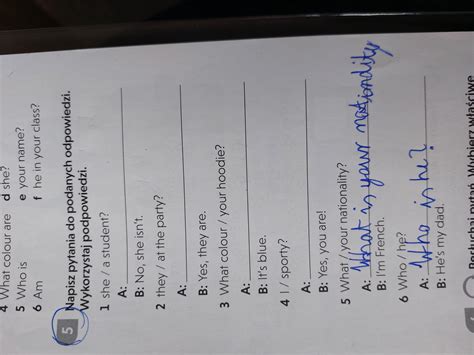 4 What colour are d she?
5 Who is e your name?
6 Am f he in your class?
5 Napisz pytania do podanych odpowiedzi.
Wykorzystaj podpowiedzi.
1 she / a student?
A:
B: No, she isn't.
2 they / at the party?
A:
B: Yes, they are.
3 What colour / your hoodie?
A:
B: It's blue.
4 I / sporty?
A:
B: Yes, you are!
5 What / your nationality?
A: What is your nationality
B: I'm French.
6 Who / he?
A: Who is he?
B: He's my dad.